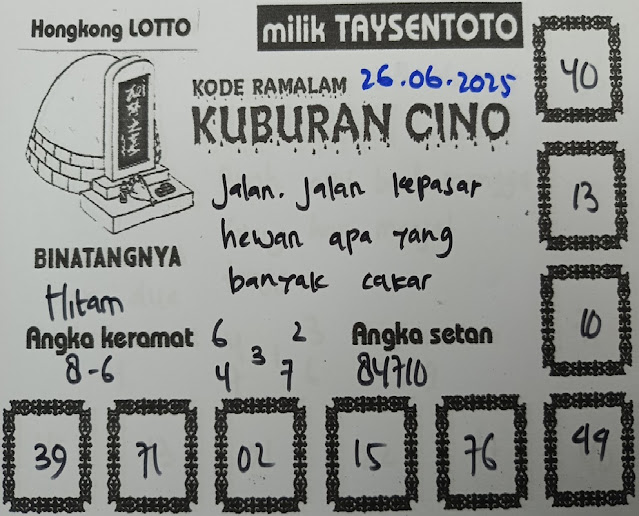 Hongkong LOTTO
milik TAYSENTOTO
KODE RAMALAM 26.06.2025
KUBURAN CINO
Jalan. Jalan kepasar
hewan apa yang
banyak cakar
BINATANGNYA
Hitam
Angka keramat
8-6
6 2
3
4 7
Angka setan
84710
40
13
10
39 71 02 15 76 49